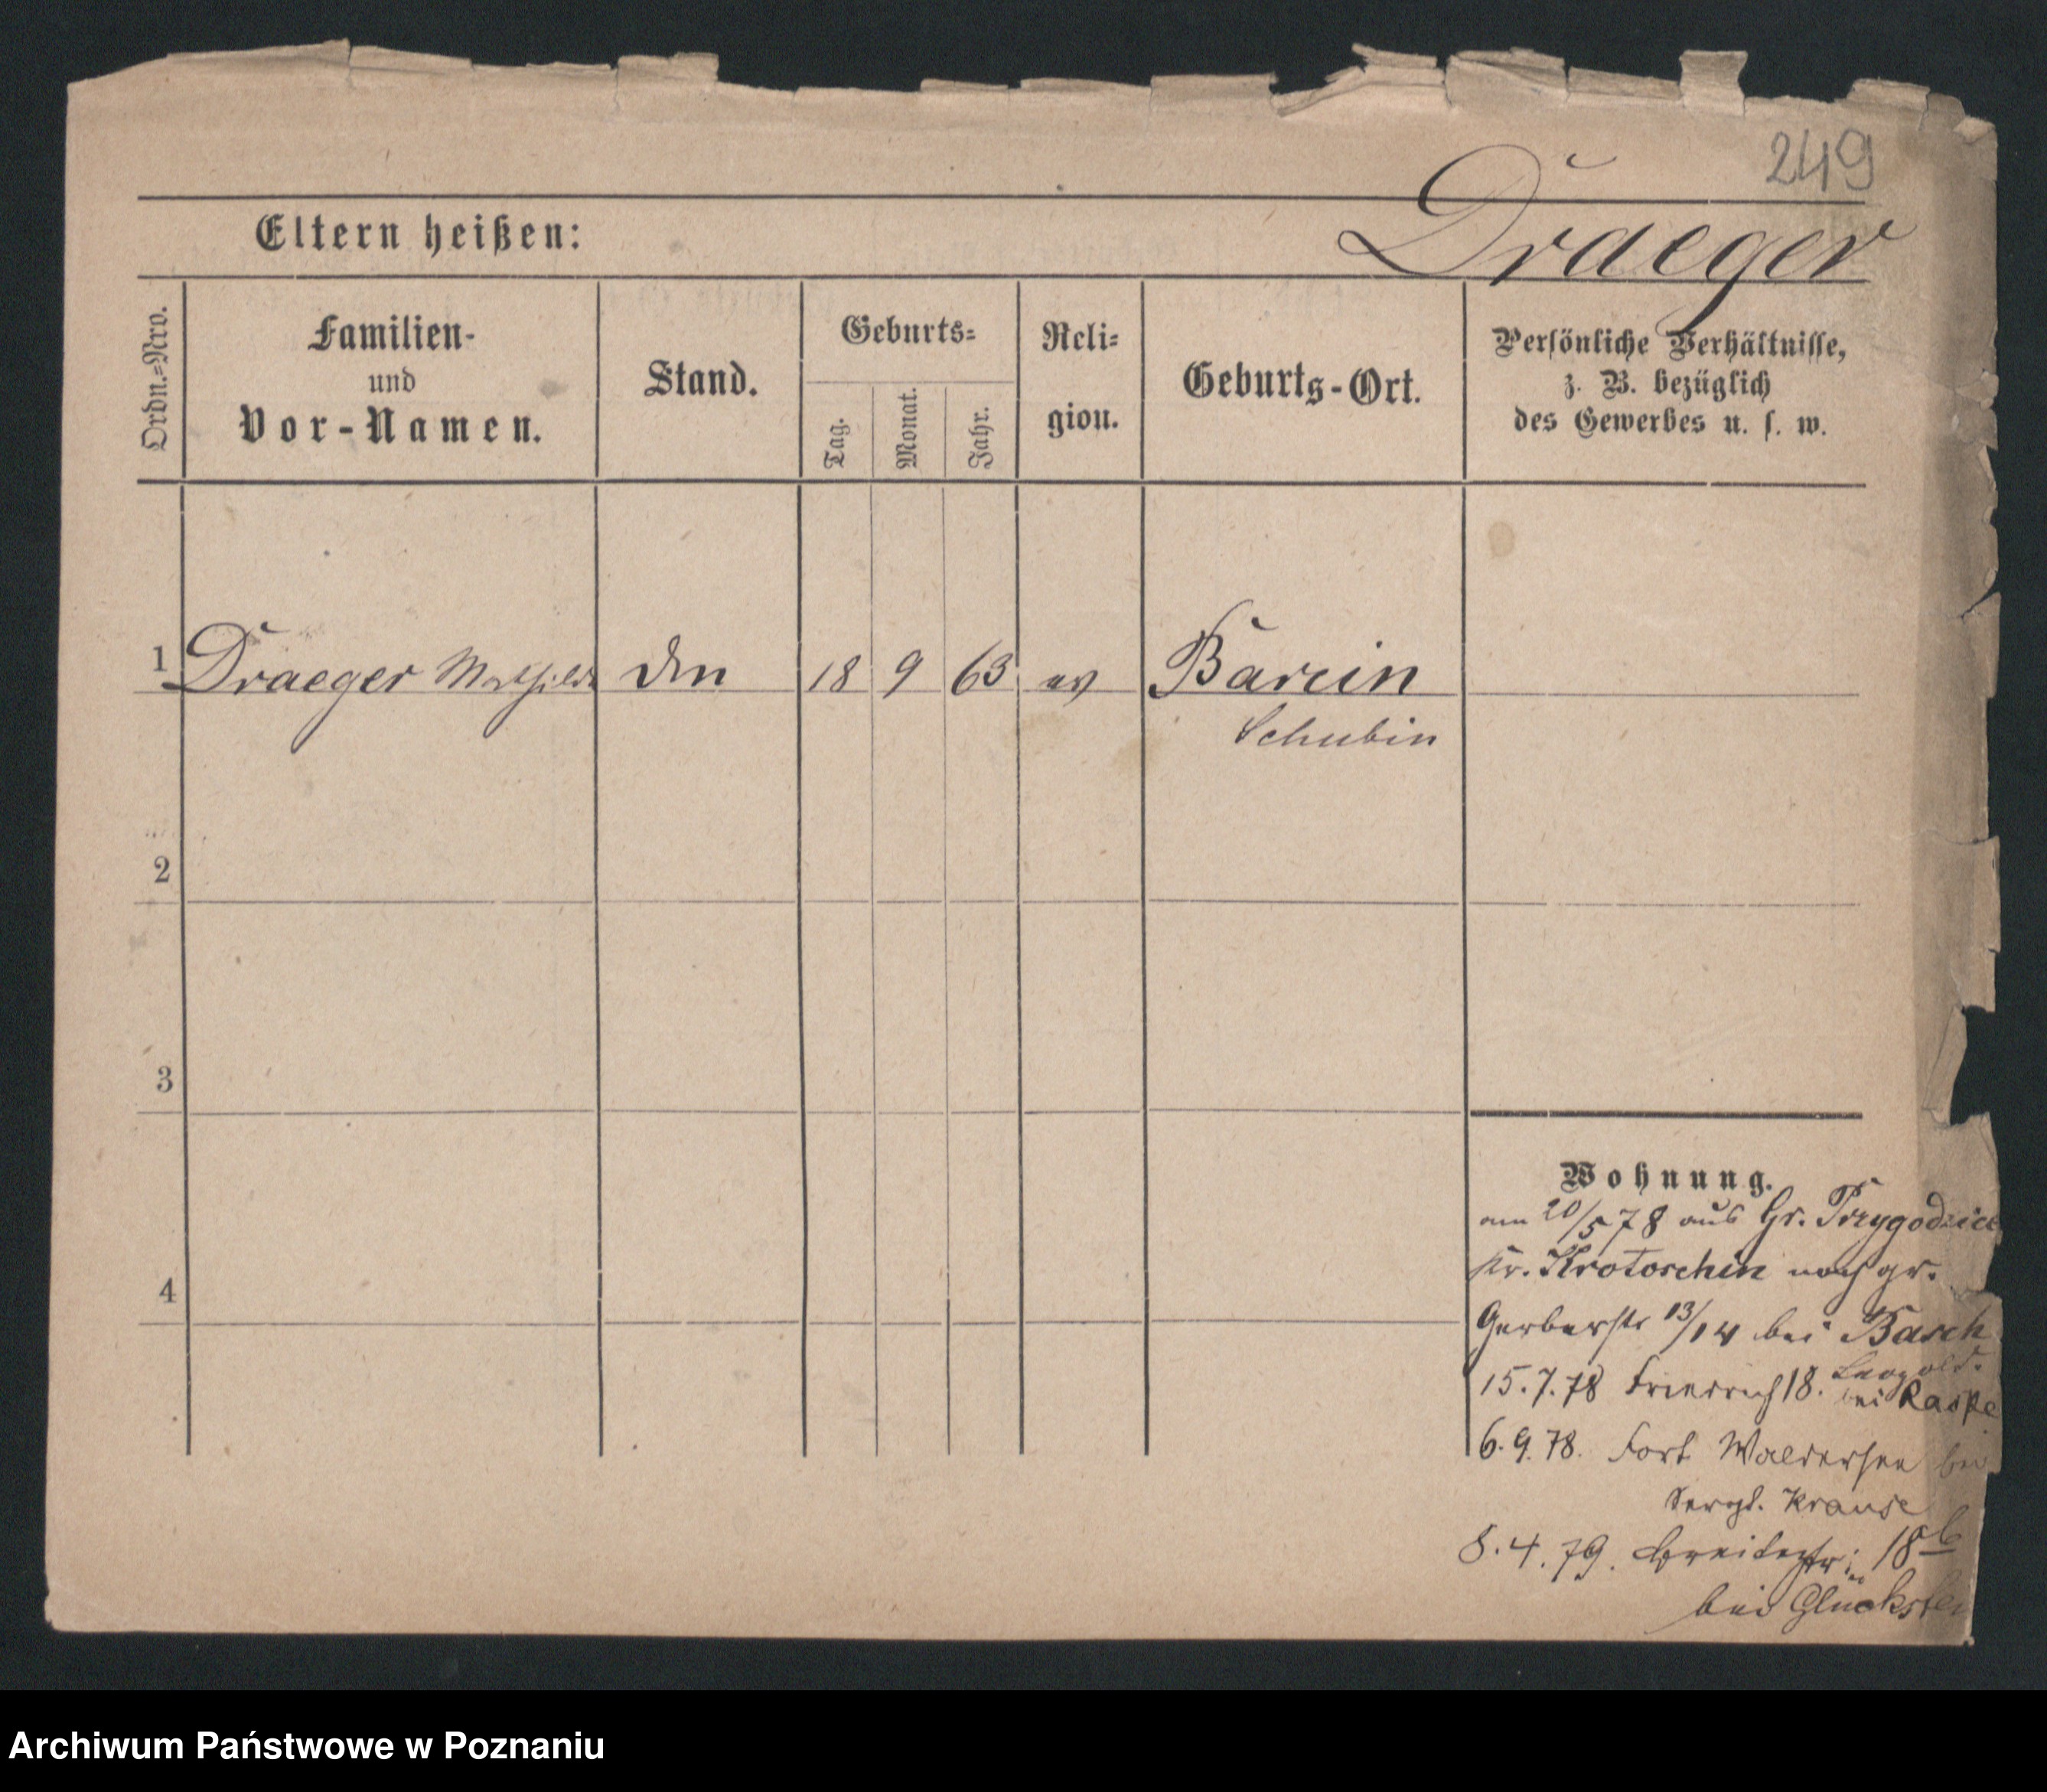 249
Draeger
Eltern heißen:
Ordn.-Nro.
Familien- und Vor-Namen.
Stand.
Geburts-
Tag.
Monat.
Jahr.
Reli-gion.
Geburts-Ort.
Persönliche Verhältnisse,
z. B. bezüglich
des Gewerbes u. s. w.
1 Draeger Mathilde 18 9 63 ev Barcin
Schubin
2
3
4
Wohnung.
am 20/5 78 aus Gr. Przygodzice
Kr. Krotoschin nach gr.
Gerberstr 13/14 bei Basch
15.7.78 Friedrich 18. Leopold.
bei Raspe
6.9.78. Fort Waldersee bei
Sergt. Krause
8.4.79. Breitestr: 18b
bei
Archiwum Państwowe w Poznaniu